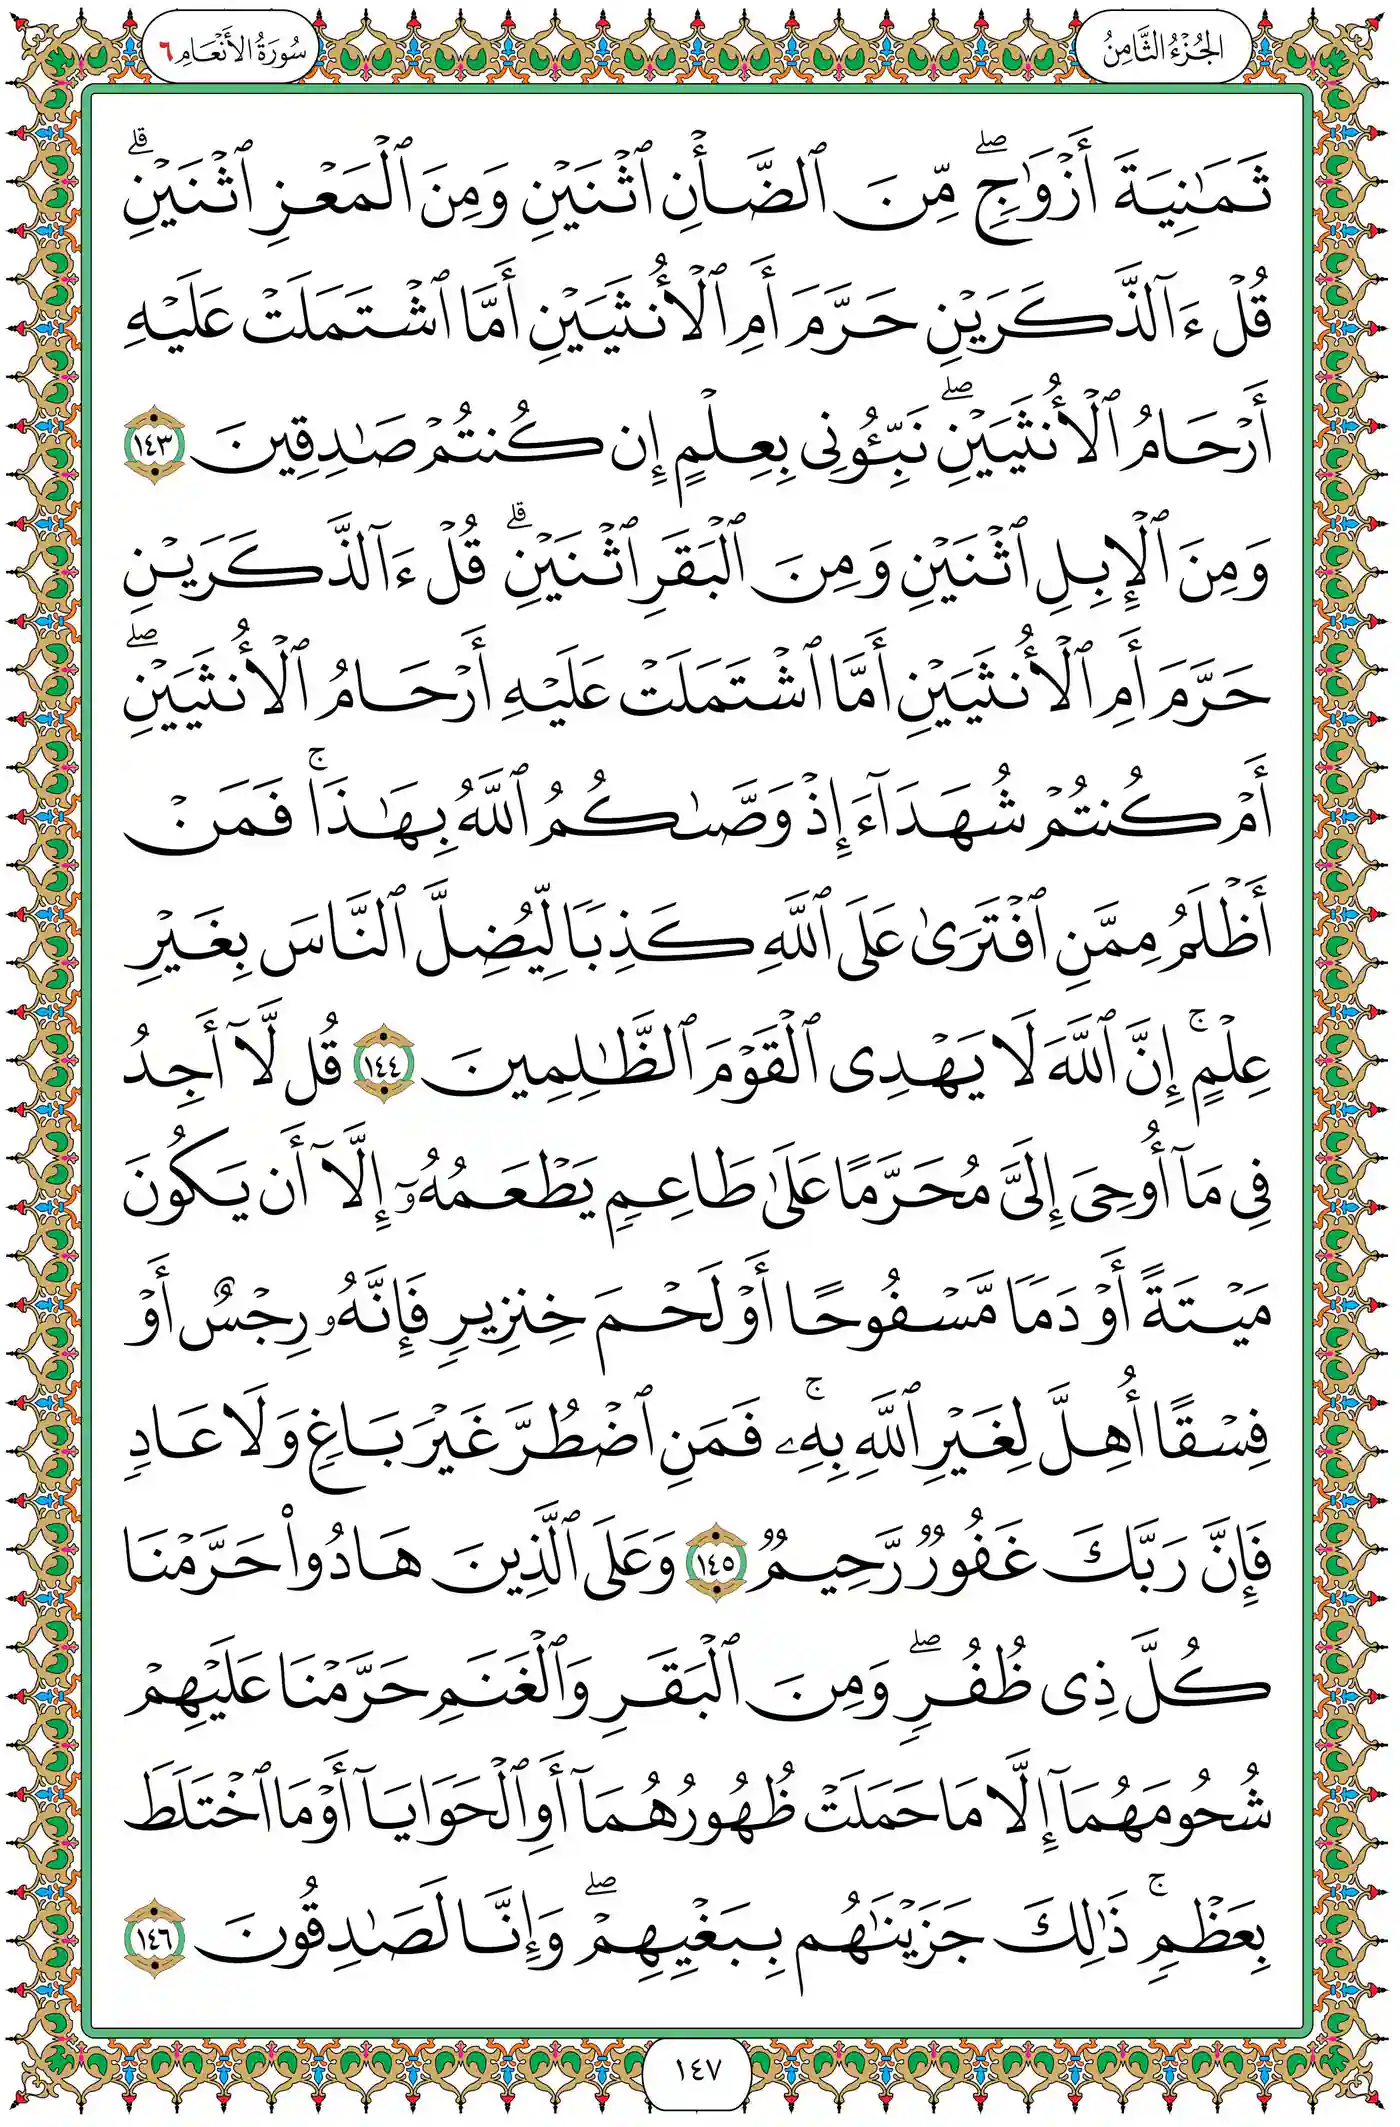 الجُزْءُ الثَّامِنُ
سُورَةُ الأَنْعَامِ ٦
ثَمَٰنِيَةَ أَزْوَٰجٖۖ مِّنَ ٱلضَّأۡنِ ٱثۡنَيۡنِ وَمِنَ ٱلۡمَعۡزِ ٱثۡنَيۡنِۗ
قُلۡ ءَآلذَّكَرَيۡنِ حَرَّمَ أَمِ ٱلۡأُنثَيَيۡنِ أَمَّا ٱشۡتَمَلَتۡ عَلَيۡهِ
أَرۡحَامُ ٱلۡأُنثَيَيۡنِۖ نَبِّـُٔونِي بِعِلۡمٍ إِن كُنتُمۡ صَٰدِقِينَ ١٤٣
وَمِنَ ٱلۡإِبِلِ ٱثۡنَيۡنِ وَمِنَ ٱلۡبَقَرِ ٱثۡنَيۡنِۗ قُلۡ ءَآلذَّكَرَيۡنِ
حَرَّمَ أَمِ ٱلۡأُنثَيَيۡنِ أَمَّا ٱشۡتَمَلَتۡ عَلَيۡهِ أَرۡحَامُ ٱلۡأُنثَيَيۡنِۖ
أَمۡ كُنتُمۡ شُهَدَآءَ إِذۡ وَصَّىٰكُمُ ٱللَّهُ بِهَٰذَاۚ فَمَنۡ
أَظۡلَمُ مِمَّنِ ٱفۡتَرَىٰ عَلَى ٱللَّهِ كَذِبٗا لِّيُضِلَّ ٱلنَّاسَ بِغَيۡرِ
عِلۡمٍۚ إِنَّ ٱللَّهَ لَا يَهۡدِي ٱلۡقَوۡمَ ٱلظَّٰلِمِينَ ١٤٤ قُل لَّآ أَجِدُ
فِي مَآ أُوحِيَ إِلَيَّ مُحَرَّمًا عَلَىٰ طَاعِمٖ يَطۡعَمُهُۥٓ إِلَّآ أَن يَكُونَ
مَيۡتَةً أَوۡ دَمٗا مَّسۡفُوحًا أَوۡ لَحۡمَ خِنزِيرٖ فَإِنَّهُۥ رِجۡسٌ أَوۡ
فِسۡقًا أُهِلَّ لِغَيۡرِ ٱللَّهِ بِهِۦۚ فَمَنِ ٱضۡطُرَّ غَيۡرَ بَاغٖ وَلَا عَادٖ
فَإِنَّ رَبَّكَ غَفُورٞ رَّحِيمٞ ١٤٥ وَعَلَى ٱلَّذِينَ هَادُواْ حَرَّمۡنَا
كُلَّ ذِي ظُفُرٖۖ وَمِنَ ٱلۡبَقَرِ وَٱلۡغَنَمِ حَرَّمۡنَا عَلَيۡهِمۡ
شُحُومَهُمَآ إِلَّا مَا حَمَلَتۡ ظُهُورُهُمَآ أَوِ ٱلۡحَوَايَآ أَوۡ مَا ٱخۡتَلَطَ
بِعَظۡمٖۚ ذَٰلِكَ جَزَيۡنَٰهُم بِبَغۡيِهِمۡۖ وَإِنَّا لَصَٰدِقُونَ ١٤٦
١٤٧